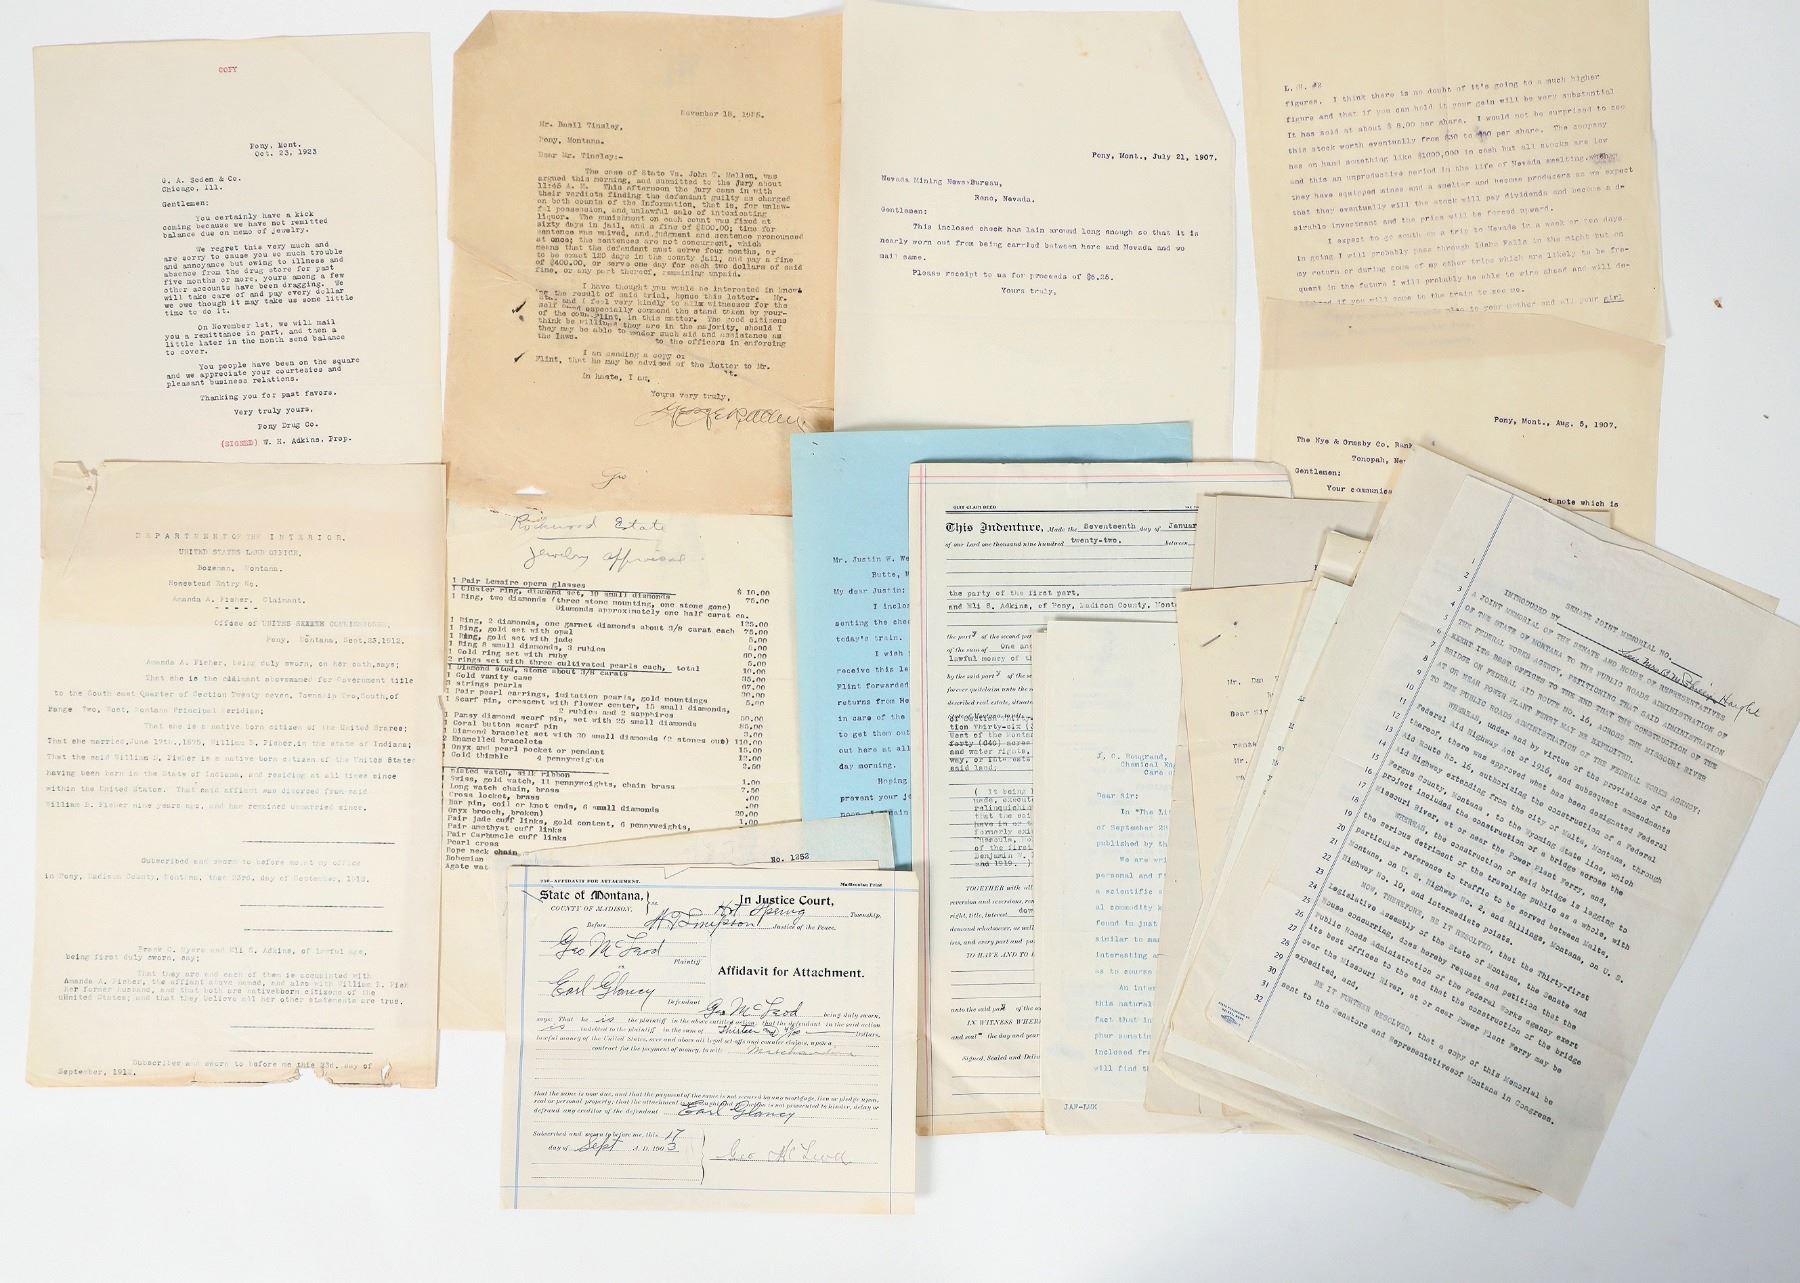 COPY
Pony, Mont.
Oct. 23, 1923
G. A. Soden & Co.
Chicago, Ill.
Gentlemen:
You certainly have a kick
coming because we have not remitted
balance due on memo of jewelry.
We regret this very much and
are sorry to cause you so much trouble
and annoyance but owing to illness and
absence from the drug store for past
five months or more, yours among a few
other accounts have been dragging. We
will take care of and pay every dollar
we owe though it may take us some little
time to do it.
On November 1st, we will mail
you a remittance in part, and then a
little later in the month send balance
to cover.
You people have been on the square
and we appreciate your courtesies and
pleasant business relations.
Thanking you for past favors.
Very truly yours,
Pony Drug Co.
(SIGNED) W. H. Adkins, Prop.
DEPARTMENT OF THE INTERIOR.
UNITED STATES LAND OFFICE,
Bozeman, Montana.
Homestead Entry No.
Amanda A. Fisher, Claimant.
Office of UNITES COMMISSIONER,
Pony, Montana, Sept.23,1912.
Amanda A. Fisher, being duly sworn, on her oath,says;
That she is the claimant abovenamed for Government title
to the South east Quarter of Section Twenty seven, Township Two,South,of
Range Two, West, Montana Principal Meridian;
That she is a native born citizen of the United States;
That she married,June 19th.,1875, William B. Fisher,in the state of Indiana;
That the said William B. Fisher is a native born citizen of the United States
having been born in the State of Indiana, and residing at all times since
within the United States. That said affiant was divorced from said
William B. Fisher nine years ago, and has remained unmarried since.
Subscribed and sworn to before me at my office
in Pony, Madison County, Montana, this 23rd, day of September, 1912.
Frank C. Myers and Eli S. Adkins, of lawful age,
being first duly sworn, say;
That they are and each of them is accuainted with
Amanda A. Fisher, the affiant above named, and also with William B. Fish
her former husband, and that both are nativeborn citizens of the
United States; and that they believe all her other statements are true.
Subscriber and sworn to before me this 23d. day of
September, 1912.
November 18, 1925.
Mr. Basil Tinsley,
Pony, Montana.
Dear Mr. Tinsley:-
The case of State Vs. John T. Mellen, was
argued this morning, and submitted to the jury about
11:45 A. M. This afternoon the jury came in with
their verdicts finding the defendant guilty as charged
on both counts of the Information, that is, for unlaw-
ful possession, and unlawful sale of intoxicating
liquor. The punishment on each count was fixed at
sixty days in jail, and a fine of $200.00; time for
sentence was waived, and judgment and sentence pronounced
at once; the sentences are not concurrent, which
means that the defendant must serve four months, or
to be exact 120 days in the county jail, and pay a fine
of $400.00, or serve one day for each two dollars of said
fine, or any part thereof, remaining unpaid.
I have thought you would be interested in know-
ing the result of said trial, hence this letter. Mr.
and I feel very kindly to all witnesses for the
especially commend the stand taken by your-
self Flint, in this matter. The good citizens
of the coun they are in the majority, should I
think be willing to render such aid and assistance as
they may be able to the officers in enforcing
the laws.
I am sending a copy of
Flint, that he may be advised of the letter to Mr.
In haste, I am,
Yours very truly,
Geo
Rockwood Estate
Jewelry appraisal
1 Pair Lemaire opera glasses $ 10.00
1 Cluster ring, diamond set, 10 small diamonds 75.00
1 Ring, two diamonds (three stone mounting, one stone gone)
Diamonds approximately one half carat ea. 125.00
1 Ring, 2 diamonds, one garnet diamonds about 3/8 carat each 75.00
1 Ring, gold set with opal 5.00
1 Ring, gold set with jade 5.00
1 Ring 8 small diamonds, 3 rubies
1 Gold ring set with ruby
2 rings set with three cultivated pearls each, total
1 Diamond stud, stone about 3/8 carats
1 Gold vanity case
strings pearls
1 Pair pearl earrings, imitation pearls, gold mountings
1 Scarf pin, crescent with flower center, 15 small diamonds,
2 rubies and 2 sapphires
1 Pansy diamond scarf pin, set with 25 small diamonds
1 Coral button scarf pin
1 Diamond bracelet set with 30 small diamonds (2 stones out) 110.00
2 Enamelled bracelets
1 Onyx and pearl pocket or pendant 15.00
1 Gold thimble 4 pennyweights 12.00
2.50
Plated watch, silk ribbon
Swiss, gold watch, 11 pennyweights, chain brass
Long watch chain, brass
Cross locket, brass
Bar pin, coil or knot ends, 6 small diamonds
Onyx brooch, broken) 20.00
Pair jade cuff links, gold content, 6 pennyweights,
Pair amethyst cuff links
Pair Carbuncle cuff links
Pearl cross
Rope neck chain
Bohemian
Agate wat
Pony, Mont., July 21, 1907.
Nevada Mining News Bureau,
Reno, Nevada.
Gentlemen:
This inclosed check has lain around long enough so that it is
nearly worn out from being carried between here and Nevada and we
mail same.
Please receipt to us for proceeds of $5.25.
Yours truly,
L. H. #2
figures. I think there is no doubt of it's going to a much higher
figure and that if you can hold it your gain will be very substantial
It has sold at about $ 8.00 per share. I would not be surprised to see
this stock worth eventually from $30 to per share. The company
has on hand something like $1000,000 in cash but all stocks are low
and this an unproductive period in the life of Nevada smelting, when
they have equipped mines and a smelter and become producers as we expect
that they eventually will the stock will pay dividends and become a de
sirable investment and the price will be forced upward.
I expect to go south on a trip to Nevada in a week or ten days.
In going I will probably pass through Idaho Falls in the night but on
my return or during some of my other trips which are likely to be fre-
quent in the future I will probably be able to wire ahead and will de-
if you will come to the train to see me.
to your mother and all your girl
Pony, Mont., Aug. 5, 1907.
The Nye & Ormsby Co. Bank,
Tonopah, Nev
Gentlemen:
Your communica
nt note which is
Mr. Justin W. We
Butte, M
My dear Justin:
I inclos
senting the che
today's train.
I wish
receive this le
Flint forwarded
returns from He
in care of the
to get them out
out here at all
day morning.
Hoping
prevent your jo
QUIT CLAIM DEED
This Indenture, Made the Seventeenth day of Januar
of our Lord one thousand nine hundred twenty-two, between
the party of the first part,
and Eli S. Adkins, of Pony, Madison County, Monta
the party of the second par
of the sum of One and
lawful money of th
by the said part
forever quitclaim unto the
described real estate, situate
West of the Montana
forty (640) acres
and water rights,
way, or interest
said land.
( It being
made, execut
relinquishin
that the sai
have in or t
formerly exi
of the first
Benjamin W.
and 1919. )
TOGETHER with all
reversion and reversions, re
right, title, interest, dow
demand whatsoever, as well
ists, and every part and pa
TO HAVE AND TO
unto the said part
IN WITNESS WHERE
and seal the day and year
Signed, Sealed and Deliv
J. C. Hougrand,
Chemical Eng
Care o
Dear Sir:
In "The Li
of September 28
published by th
We are wri
personal and f
a scientific s
al commodity k
found in just
similar to man
interesting an
as to course
An inter
this natural
fact that in
phur senatin
inclosed fr
will find th
JAF-LMK
Mr. Dan
Dear Sir
No. 1252
AFFIDAVIT FOR ATTACHMENT.
Madisonian Print
State of Montana,
COUNTY OF MADISON.
In Justice Court,
Hot Spring Township,
Before H. Simpson Justice of the Peace.
Geo McLeod
Plaintiff
vs
Earl Glancy
Defendant
Affidavit for Attachment.
Geo McLeod being duly sworn,
says: That he is the plaintiff in the above entitled action; that the defendant in the said action
is indebted to the plaintiff in the sum of Thirteen Dollars,
lawful money of the United States, over and above all legal set-offs and counter claims, upon a
contract for the payment of money, to wit: Merchandise
that the same is now due, and that the payment of the same is not secured by any mortgage, lien or pledge upon,
real or personal property; that the attachment is not sought and the action is not prosecuted to hinder, delay or
defraud any creditor of the defendant Earl Glancy
Subscribed and sworn to before me, this 17
day of Sept A. D. 1903
Geo McLeod
SENATE JOINT MEMORIAL NO.
INTRODUCED BY
1 A JOINT MEMORIAL OF THE SENATE AND HOUSE OF REPRESENTATIVES
2 OF THE STATE OF MONTANA TO THE PUBLIC ROADS ADMINISTRATION OF
3 THE FEDERAL WORKS AGENCY, PETITIONING THAT SAID ADMINISTRATION
4 EXERT ITS BEST OFFICES TO THE END THAT THE CONSTRUCTION OF THE
5 BRIDGE ON FEDERAL AID ROUTE NO. 16, ACROSS THE MISSOURI RIVER
6 AT OR NEAR POWER PLANT FERRY MAY BE EXPEDITED.
7 TO THE PUBLIC ROADS ADMINISTRATION OF THE FEDERAL WORKS AGENCY:
8 WHEREAS, under and by virtue of the provisions of the
9 Federal Aid Highway Act of 1916, and subsequent amendments
10 thereof, there was approved what has been designated Federal
11 Aid Route No. 16, authorizing the construction of a Federal
12 Aid Highway extending from the city of Malta, Montana, through
13 Fergus County, Montana, to the Wyoming State line, which
14 project included the construction of a bridge across the
15 Missouri River, at or near the Power Plant Ferry, and,
16 WHEREAS, the construction of said bridge is legging to
17 the serious detriment of the traveling public as a whole, with
18 particular reference to traffic to be served between Malta,
19 Montana, on U. S. Highway No. 2, and Billings, Montana, on U. S.
20 Highway No. 10, and intermediate points.
21 NOW, THEREFORE, BE IT RESOLVED, that the Thirty-first
22 Legislative Assembly of the State of Montana, the Senate and
23 House concurring, does hereby request and petition that the
24 Public Roads Administration of the Federal Works Agency exert
25 its best offices to the end that the construction of the bridge
26 over the Missouri River, at or near Power Plant Ferry may be
27 expedited, and,
28 BE IT FURTHER RESOLVED, that a copy of this Memorial be
29 sent to the Senators and Representatives of Montana in Congress.
30
31
32